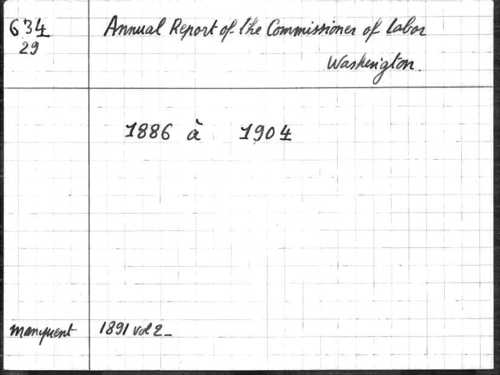 634 Annual Report of the Commissioner of Labor
29
Washington.
1886 à 1904
manquent 1891 vol 2_